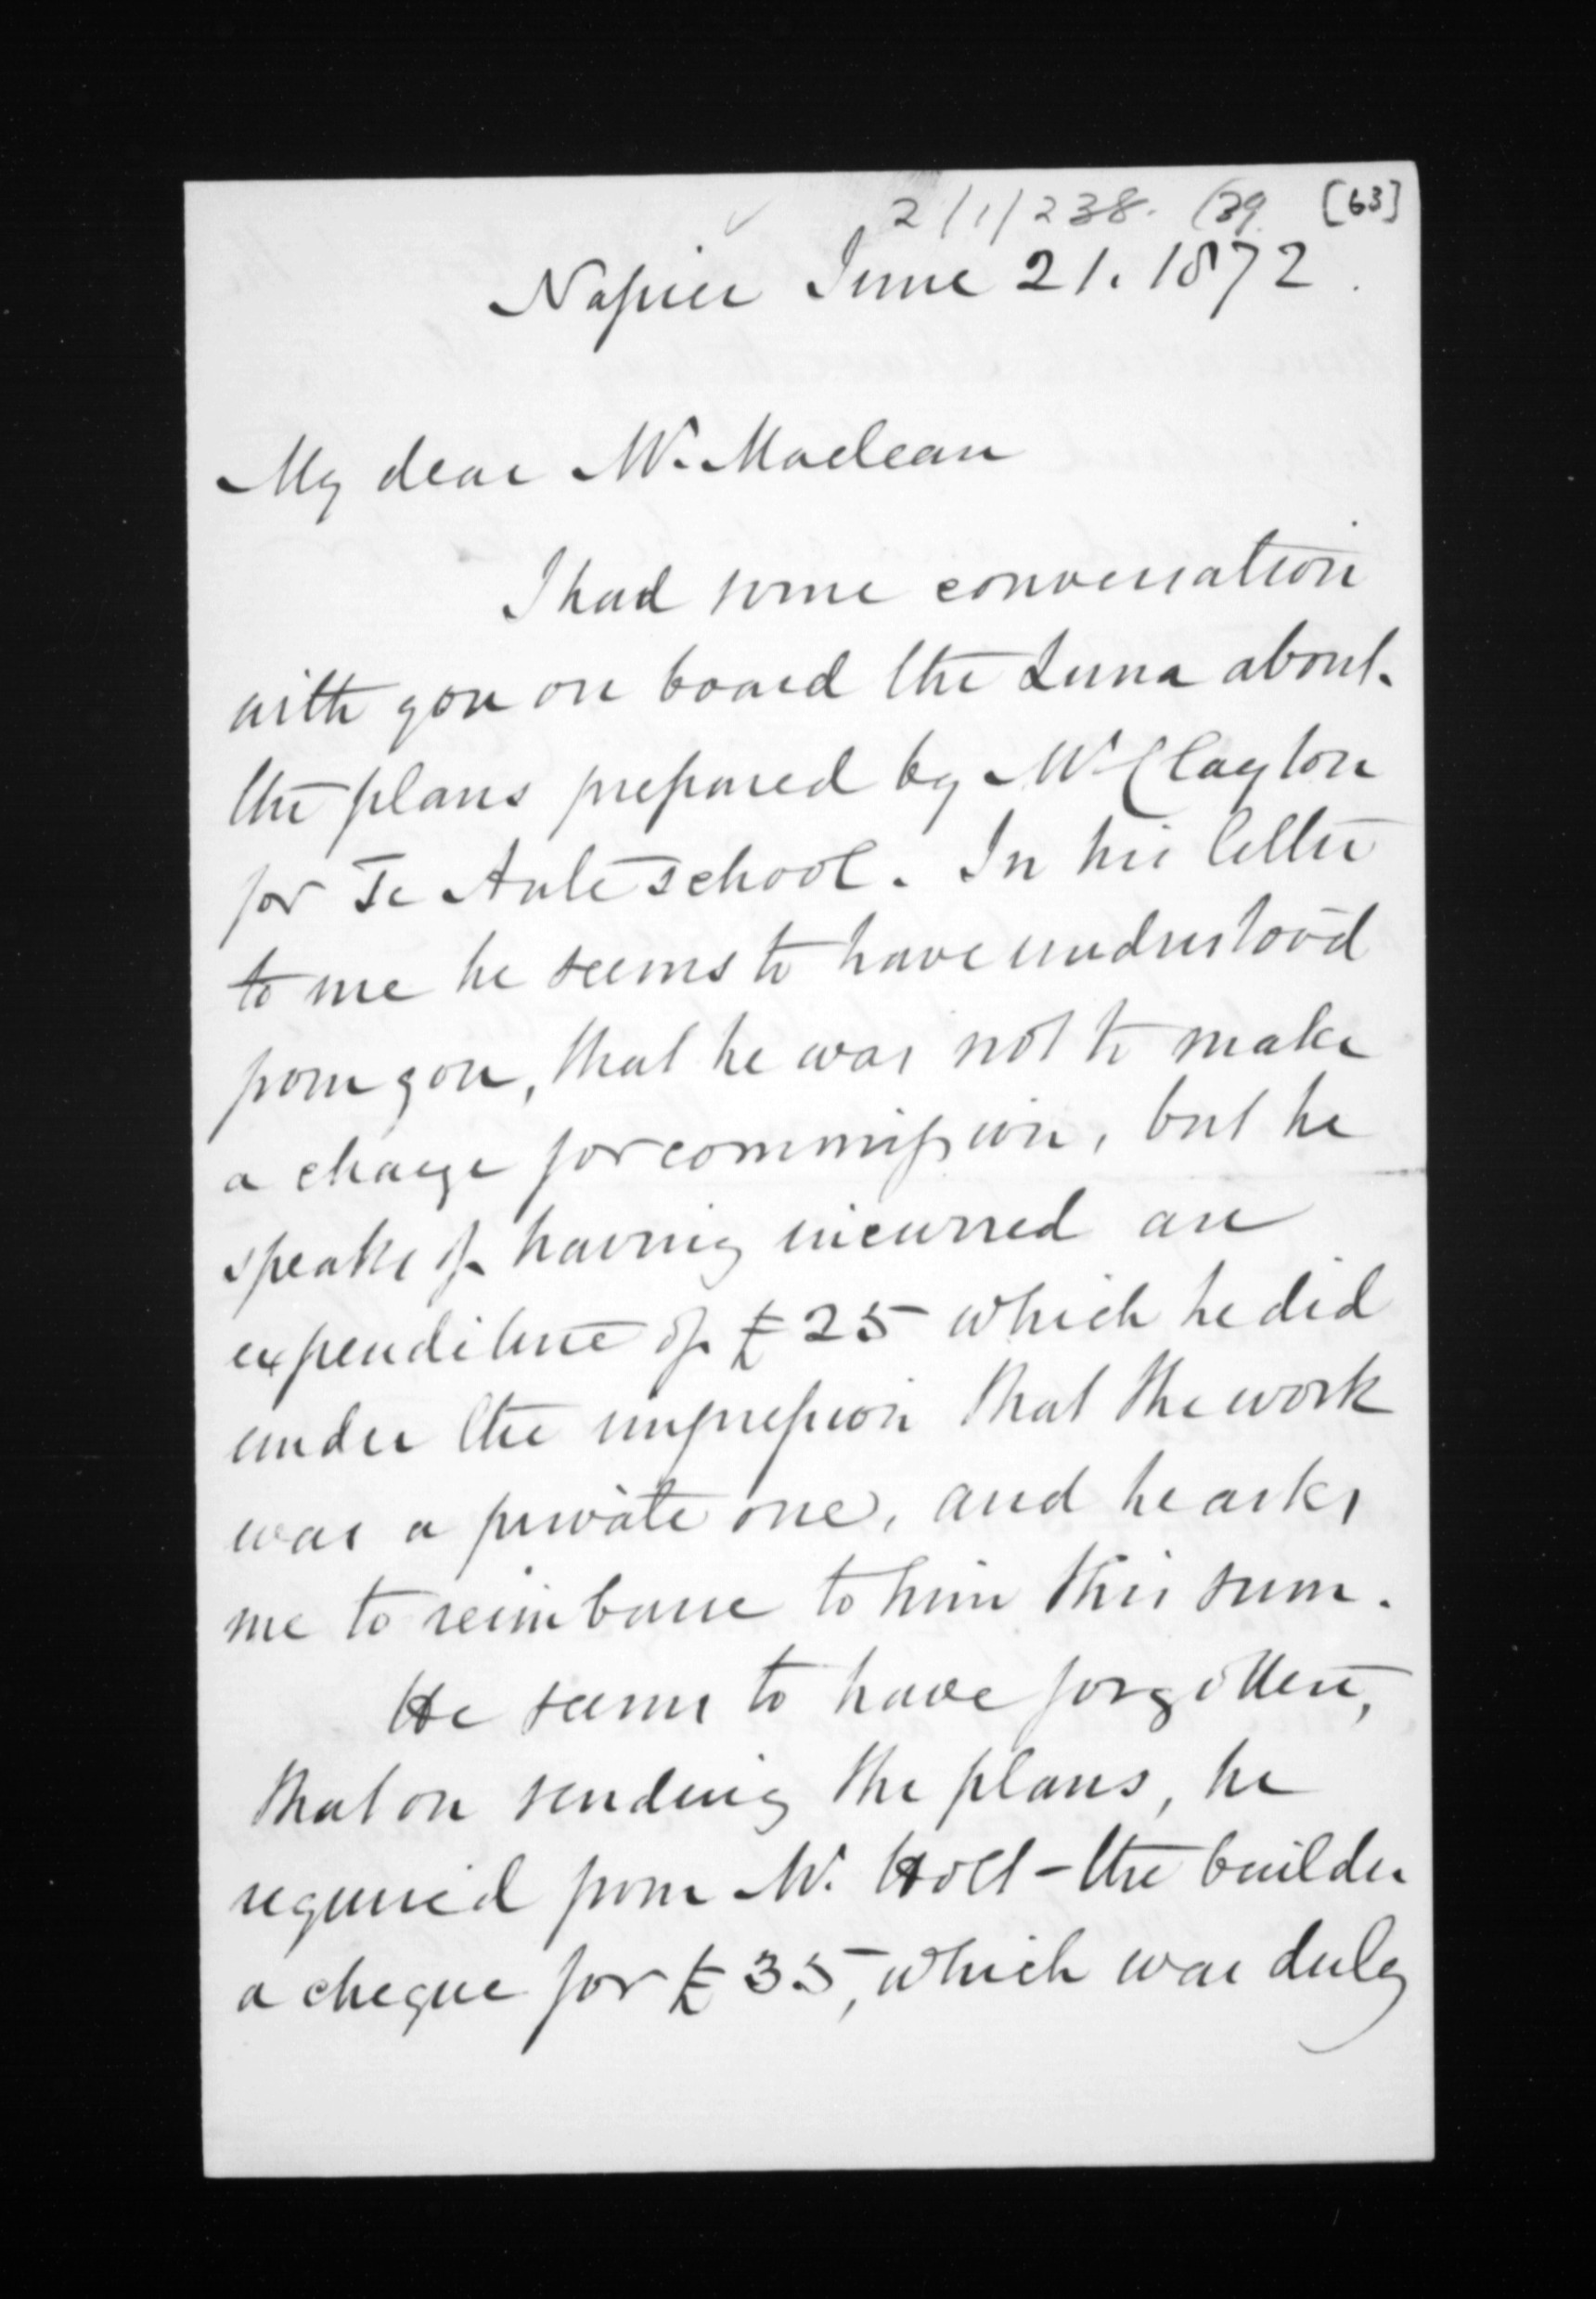 2/1/238. (39 [63]
Napier June 21. 1872.
My dear Mr. Maclean
I had some conversation
with you on board the Luna about
the plans prepared by Mr Clayton
for Te Aute school. In his letter
to me he seems to have understood
from you, that he was not to make
a charge for commission, but he
speaks of having incurred an
expenditure of £25 which he did
under the impression that the work
was a private one, and he asks
me to reimburse to him this sum.
He seems to have forgotten,
that on sending the plans, he
required from Mr. Holt - the builder
a cheque for £35, which was duly